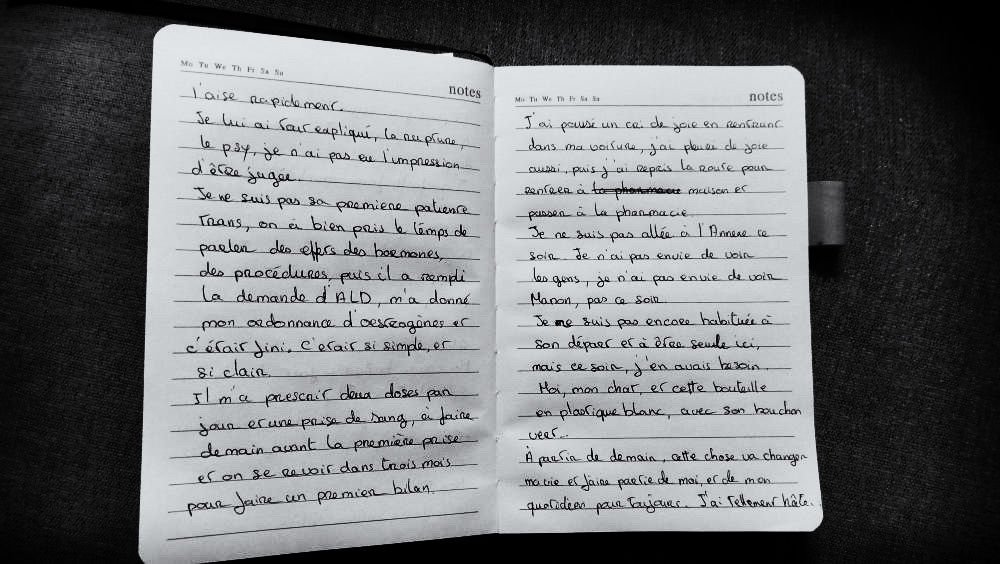 Mo Tu We Th Fr Sa Su
notes
l'aise rapidement.
Je lui ai tout expliqué, la rupture,
le psy, je n'ai pas eu l'impression
d'être jugée.
Je ne suis pas sa première patiente
trans, on a bien pris le temps de
parler des effets des hormones,
des procédures, puis il a rempli
la demande d'ALD, m'a donné
mon ordonnance d'oestrogènes et
c'était fini. C'était si simple, et
si clair.
Il m'a prescrit deux doses par
jour et une prise de sang, à faire
demain avant la première prise
et on se revoit dans trois mois
pour faire un premier bilan.
Mo Tu We Th Fr Sa Su
notes
J'ai poussé un cri de joie en rentrant
dans ma voiture, j'ai pleuré de joie
aussi, puis j'ai repris la route pour
rentrer à la pharmacie maison et
passer à la pharmacie.
Je ne suis pas allée à l'Annexe ce
soir. Je n'ai pas envie de voir
les gens, je n'ai pas envie de voir
Manon, pas ce soir.
Je ne suis pas encore habituée à
son départ et à être seule ici,
mais ce soir, j'en avais besoin.
Moi, mon chat, et cette bouteille
en plastique blanc, avec son bouchon
vert...
À partir de demain, cette chose va changer
ma vie et faire partie de moi, et de mon
quotidien pour toujours. J'ai tellement hâte.